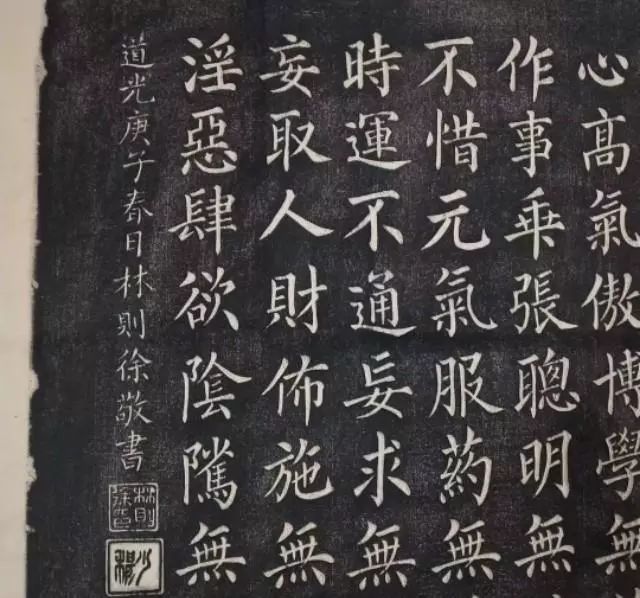 心高氣傲博學無
作事乗張聰明無
不惜元氣服葯無
時運不通妄求無
妄取人財佈施無
淫惡肆欲陰隲無
道光庚午春日林則徐敬書
林則徐印
少穆